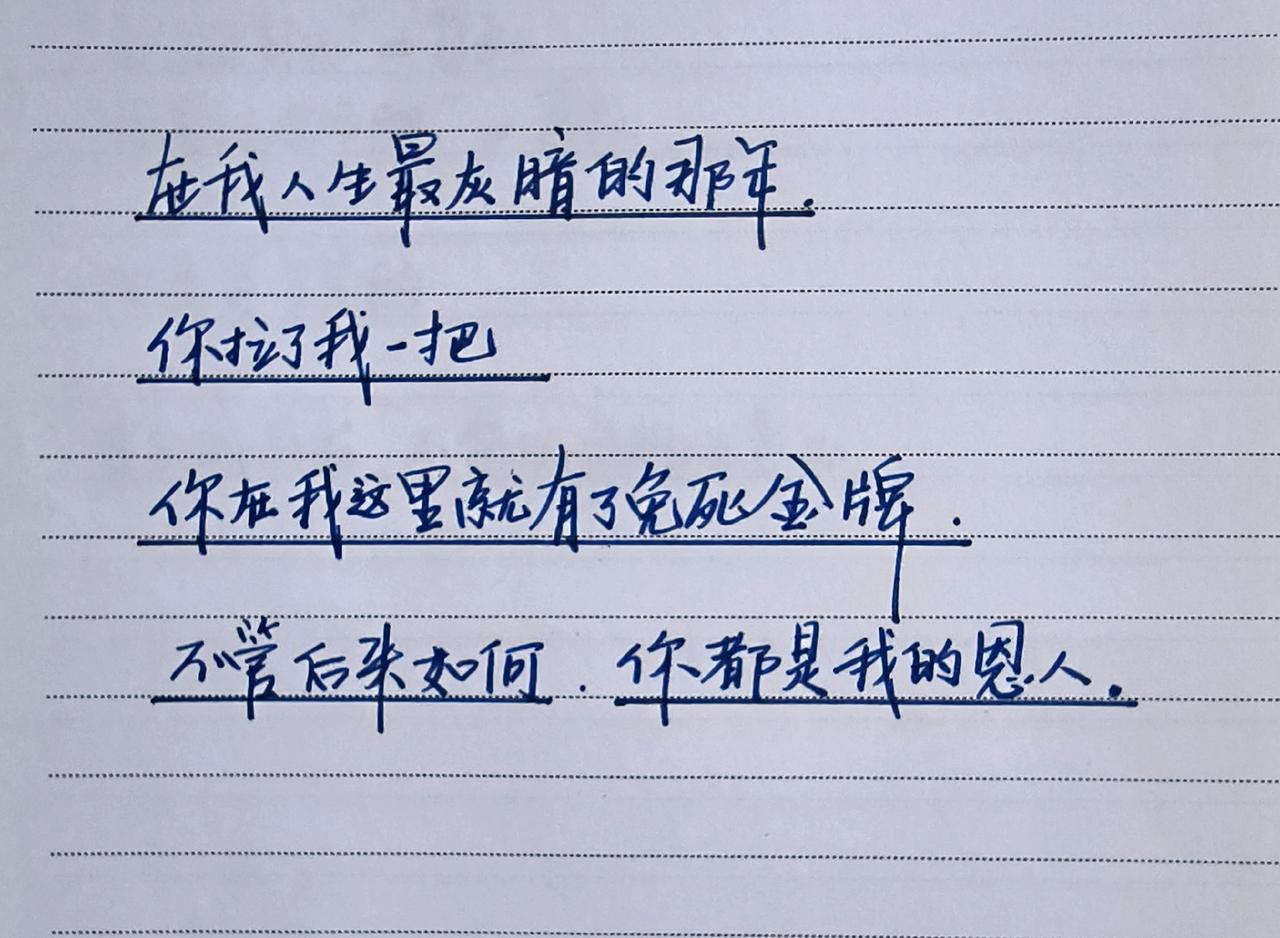 在我人生最灰暗的那年.
你拉了我一把
你在我这里就有了免死金牌.
不管后来如何.你都是我的恩人.